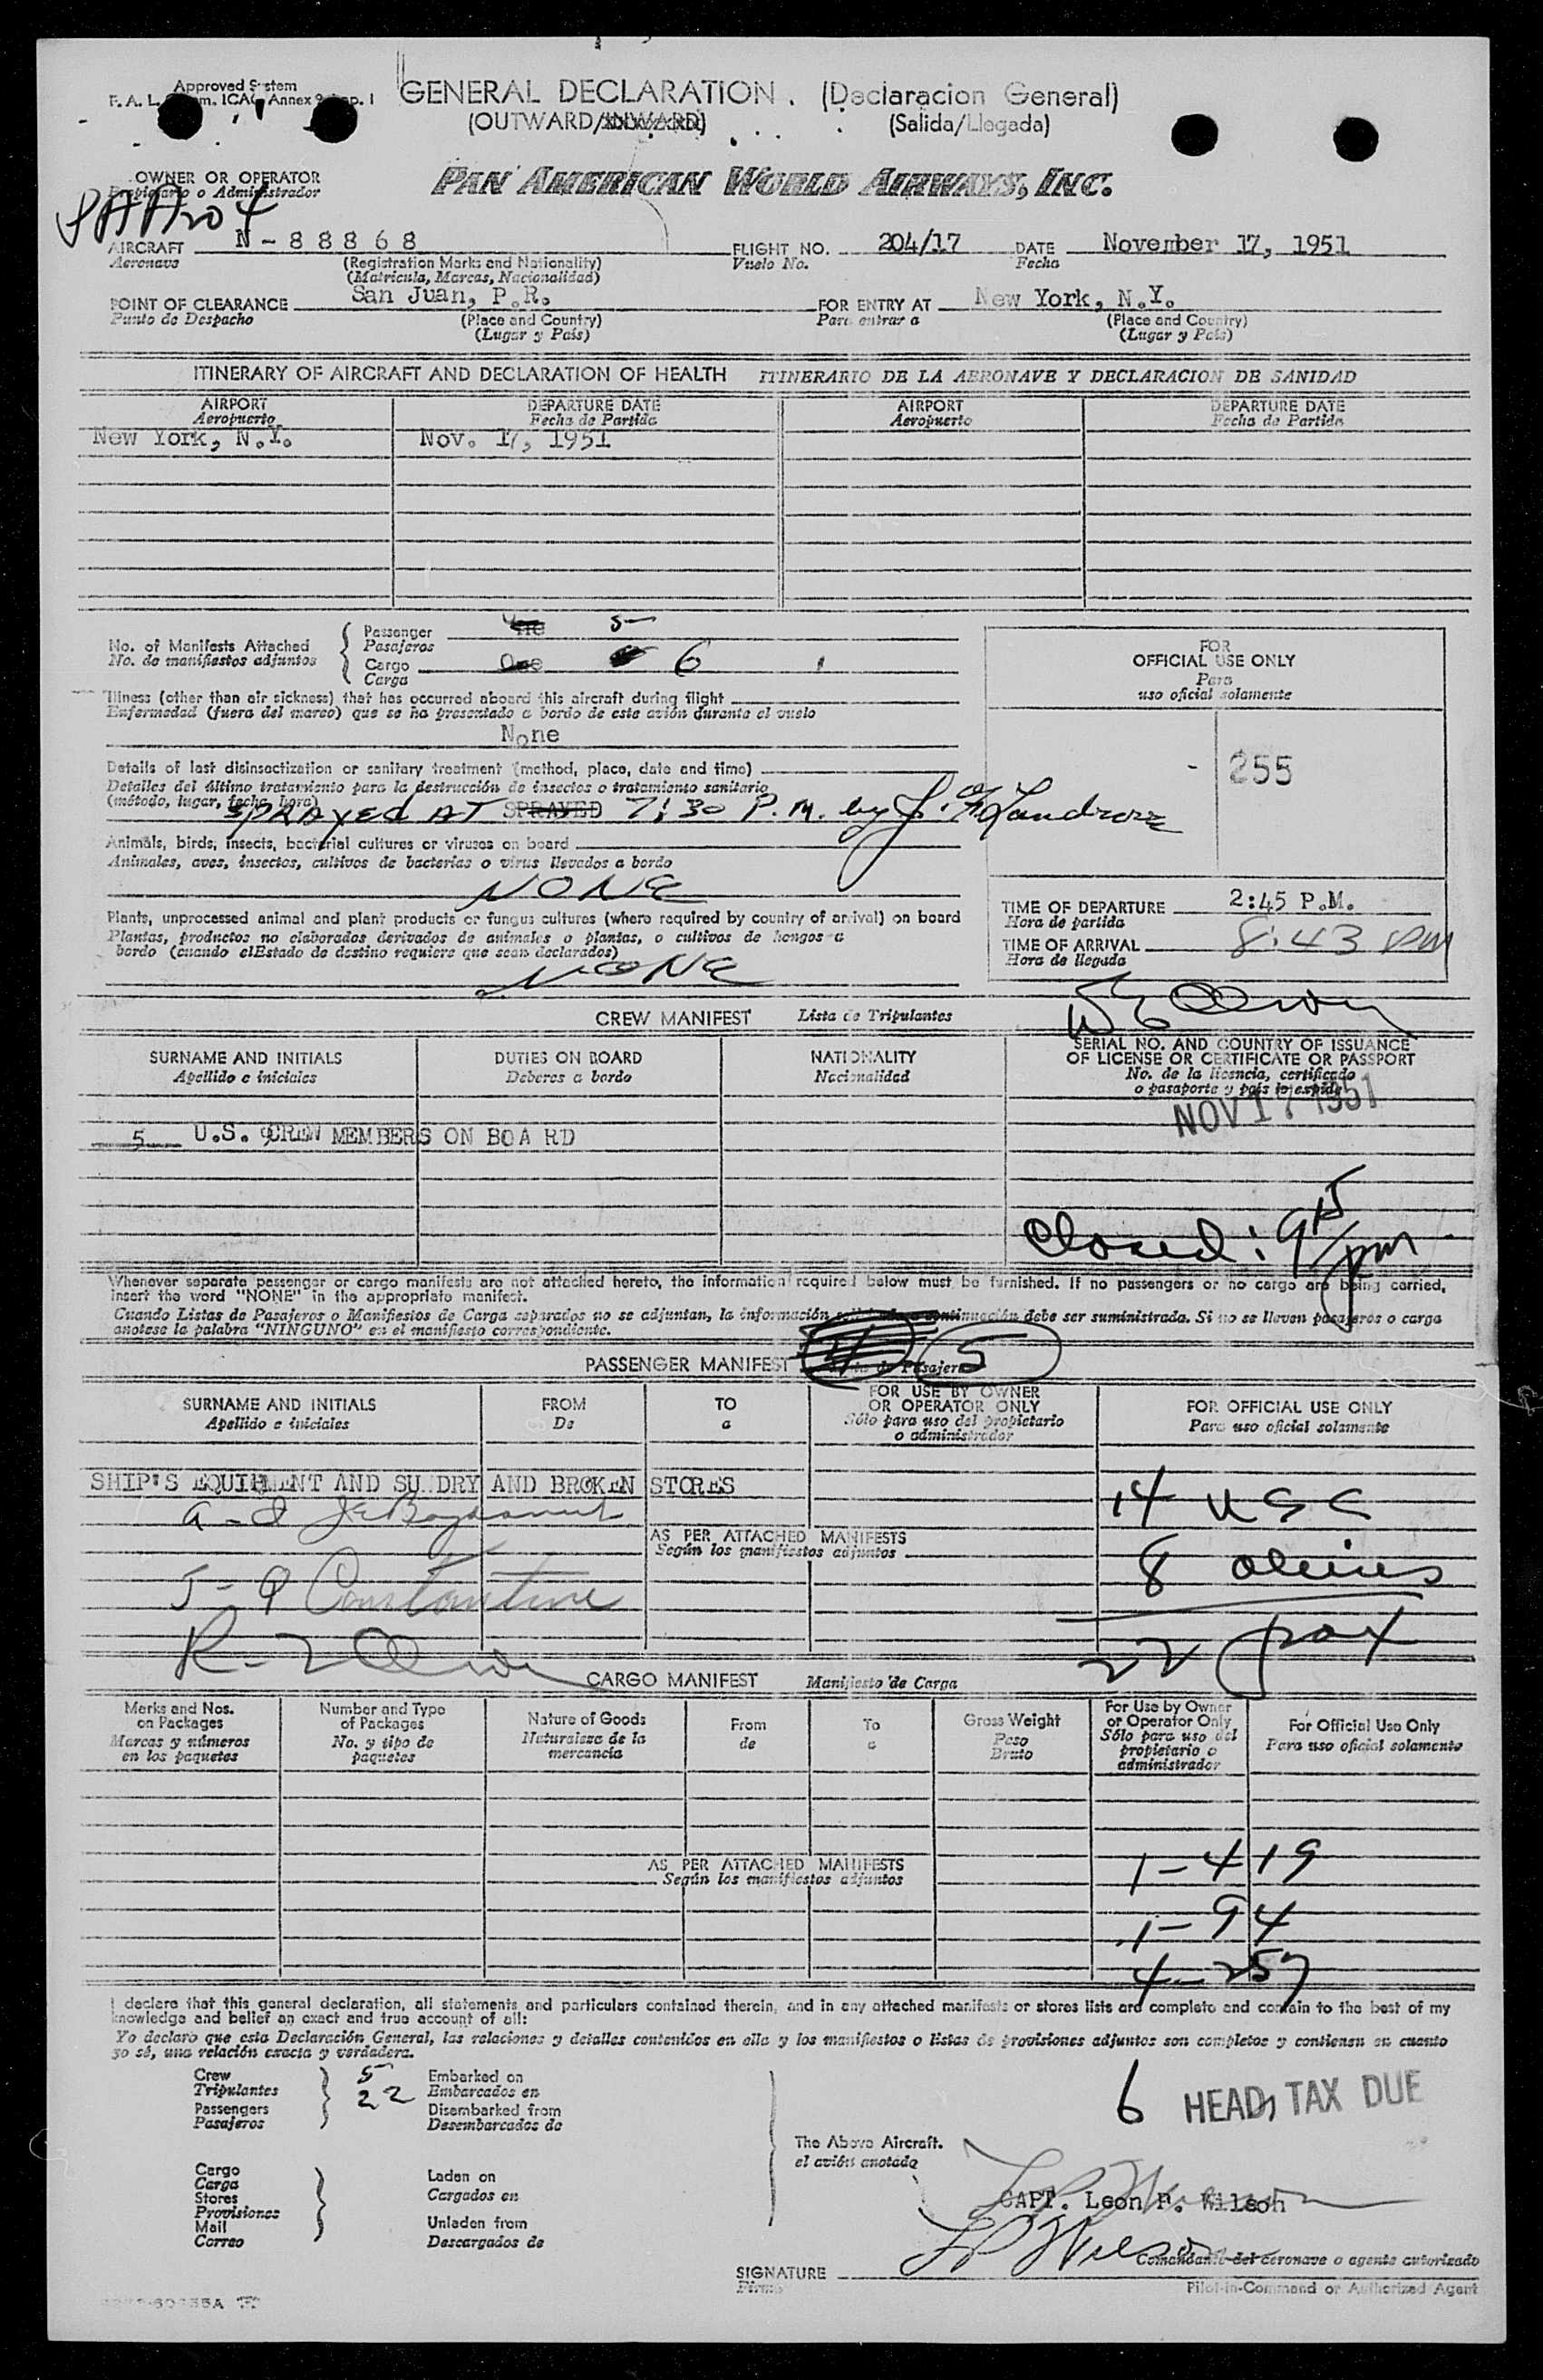 Approved System
F. A. L. Annex 9 I
GENERAL DECLARATION. (Declaracion General)
(OUTWARD/INWARD) (Salida/Llegada)
OWNER OR OPERATOR
Propietario o Administrador
PAN AMERICAN WORLD AIRWAYS, INC.
PAA204
AIRCRAFT N-88868 FLIGHT NO. 204/17 DATE November 17, 1951
Aeronave Vuelo No. Fecha
(Registration Marks and Nationality)
(Matricula, Marcas, Nacionalidad)
POINT OF CLEARANCE San Juan, P.R. FOR ENTRY AT New York, N.Y.
Punto de Despacho (Place and Country) Para entrar a (Place and Country)
(Lugar y País) (Lugar y País)
ITINERARY OF AIRCRAFT AND DECLARATION OF HEALTH ITINERARIO DE LA AERONAVE Y DECLARACION DE SANIDAD
AIRPORT DEPARTURE DATE AIRPORT DEPARTURE DATE
Aeropuerto Fecha de Partida Aeropuerto Fecha de Partida
New York, N.Y. Nov. 17, 1951
No. of Manifests Attached
No. de manifiestos adjuntos
Passenger 5
Pasajeros
Cargo One 6
Carga
Illness (other than air sickness) that has occurred aboard this aircraft during flight
Enfermedad (fuera del mareo) que se ha presentado a bordo de este avión durante el vuelo
None
Details of last disinsectization or sanitary treatment (method, place, date and time)
Detalles del último tratamiento para la destrucción de insectos o tratamiento sanitario
(método, lugar, fecha, hora)
SPRAYED AT SPRAYED 7:30 P.M. by
Animals, birds, insects, bacterial cultures or viruses on board
Animales, aves, insectos, cultivos de bacterias o virus llevados a bordo
NONE
Plants, unprocessed animal and plant products or fungus cultures (where required by country of arrival) on board
Plantas, productos no elaborados derivados de animales o plantas, o cultivos de hongos a
bordo (cuando elEstado de destino requiere que sean declarados)
NONE
FOR
OFFICIAL USE ONLY
Para
uso oficial solamente
- 255
TIME OF DEPARTURE 2:45 P.M.
Hora de partida
TIME OF ARRIVAL 8:43 PM
Hora de llegada
CREW MANIFEST Lista de Tripulantes
SURNAME AND INITIALS DUTIES ON BOARD NATIONALITY SERIAL NO. AND COUNTRY OF ISSUANCE
OF LICENSE OR CERTIFICATE OR PASSPORT
Apellido e iniciales Deberes a bordo Nacionalidad No. de la licencia, certificado
o pasaporte y país lo expide
NOV 17 1951
5 U.S. CREW MEMBERS ON BOARD
Closed: 9 15/pm
Whenever separate passenger or cargo manifests are not attached hereto, the information required below must be furnished. If no passengers or no cargo are being carried,
insert the word "NONE" in the appropriate manifest.
Cuando Listas de Pasajeros o Manifiestos de Carga separados no se adjuntan, la información continuación debe ser suministrada. Si no se lleven pasajeros o carga
anotese la palabra "NINGUNO" en el manifiesto correspondiente.
PASSENGER MANIFEST de Pasajeros 5
SURNAME AND INITIALS FROM TO FOR USE BY OWNER
OR OPERATOR ONLY FOR OFFICIAL USE ONLY
Apellido e iniciales De a Sólo para uso del propietario
o administrador Para uso oficial solamente
SHIP'S EQUIPMENT AND SUNDRY AND BROKEN STORES
14 USC
AS PER ATTACHED MANIFESTS
Según los manifiestos adjuntos
8 aliens
J-Q Constantine
22 pax
CARGO MANIFEST Manifiesto de Carga
Marks and Nos.
on Packages
Marcas y números
en los paquetes
Number and Type
of Packages
No. y tipo de
paquetes
Nature of Goods
Naturaleza de la
mercancía
From
de
To
a
Gross Weight
Peso
Bruto
For Use by Owner
or Operator Only
Sólo para uso del
propietario o
administrador
For Official Use Only
Para uso oficial solamente
AS PER ATTACHED MANIFESTS
Según los manifiestos adjuntos
1-419
1-94
4-257
I declare that this general declaration, all statements and particulars contained therein, and in any attached manifests or stores lists are complete and contain to the best of my
knowledge and belief an exact and true account of all:
Yo declaro que esta Declaración General, las relaciones y detalles contenidos en ella y los manifiestos o listas de provisiones adjuntos son completos y contienen en cuanto
yo sé, una relación exacta y verdadera.
Crew 5 Embarked on
Tripulantes 22 Embarcados en
Passengers Disembarked from
Pasajeros Desembarcados de
6 HEAD TAX DUE
The Above Aircraft.
el avión anotado
Cargo Laden on
Carga
Stores Cargados en
Provisiones
Mail Unladen from
Correo Descargados de
CAPT. Leon P. Wilson
LP Wilson
Comandante del aeronave o agente autorizado
SIGNATURE
Firma
Pilot-in-Command or Authorized Agent